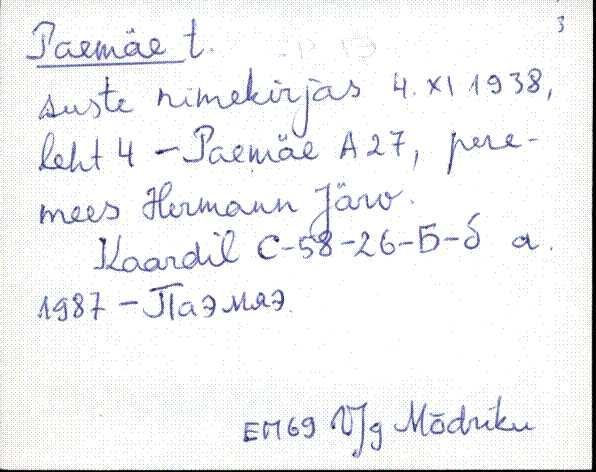 3
Paemäe t.
suste nimekirjas 4. XI 1938,
leht 4 – Paemäe A 27, pere-
mees Hermann Järv.
Kaardil С-58-26-Б-б a.
1987 – Паэмяэ.
V/g Mõdriku